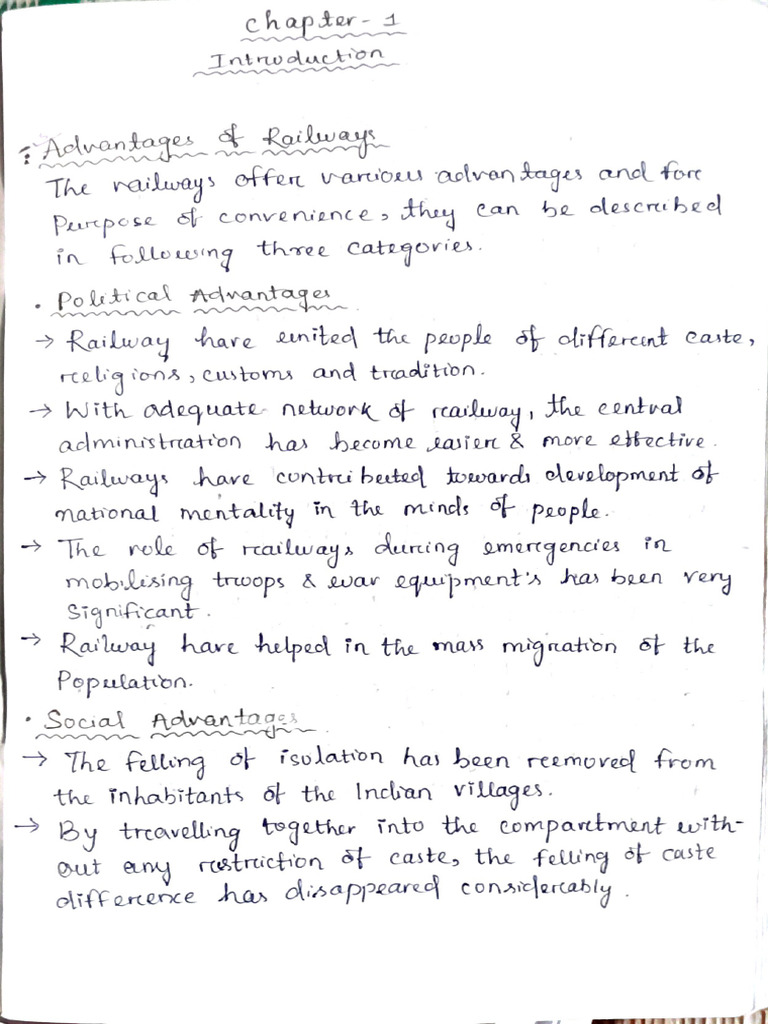 Chapter - 1
Introduction
Advantages of Railways
The railways offer various advantages and for
Purpose of convenience, they can be described
in following three categories.
• Political Advantages
→ Railway have united the people of different caste,
religions, customs and tradition.
→ With adequate network of railway, the central
administration has become easier & more effective.
→ Railways have contributed towards development of
national mentality in the minds of people.
→ The role of railways during emergencies in
mobilising troops & war equipment's has been very
significant.
→ Railway have helped in the mass migration of the
Population.
• Social Advantages
→ The felling of isolation has been reemoved from
the inhabitants of the Indian villages.
→ By travelling together into the compartment with-
out any restruction of caste, the felling of caste
difference has disappeared considerably.